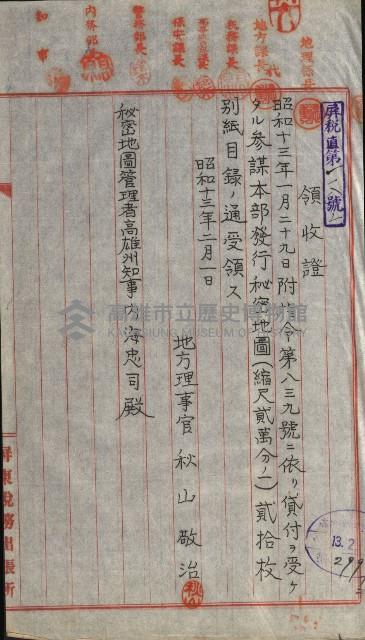 屏稅直第一八號ノ一
領收證
昭和十三年一月二十九日附指令第八三九號ニ依リ貸付ヲ受ケ
タル參謀本部發行秘密地圖(縮尺貳萬分ノ一)貳拾枚
別紙目錄ノ通受領ス
昭和十三年二月一日
地方理事官 秋山敬治
秘密地圖管理者高雄州知事內海忠司殿
知事
內務部長
警務部長
保安課長
稅務課長
地方課長
地理課長
屏東稅務出張所
13.2
高雄市立歷史博物館
KAOHSIUNG MUSEUM OF HISTORY